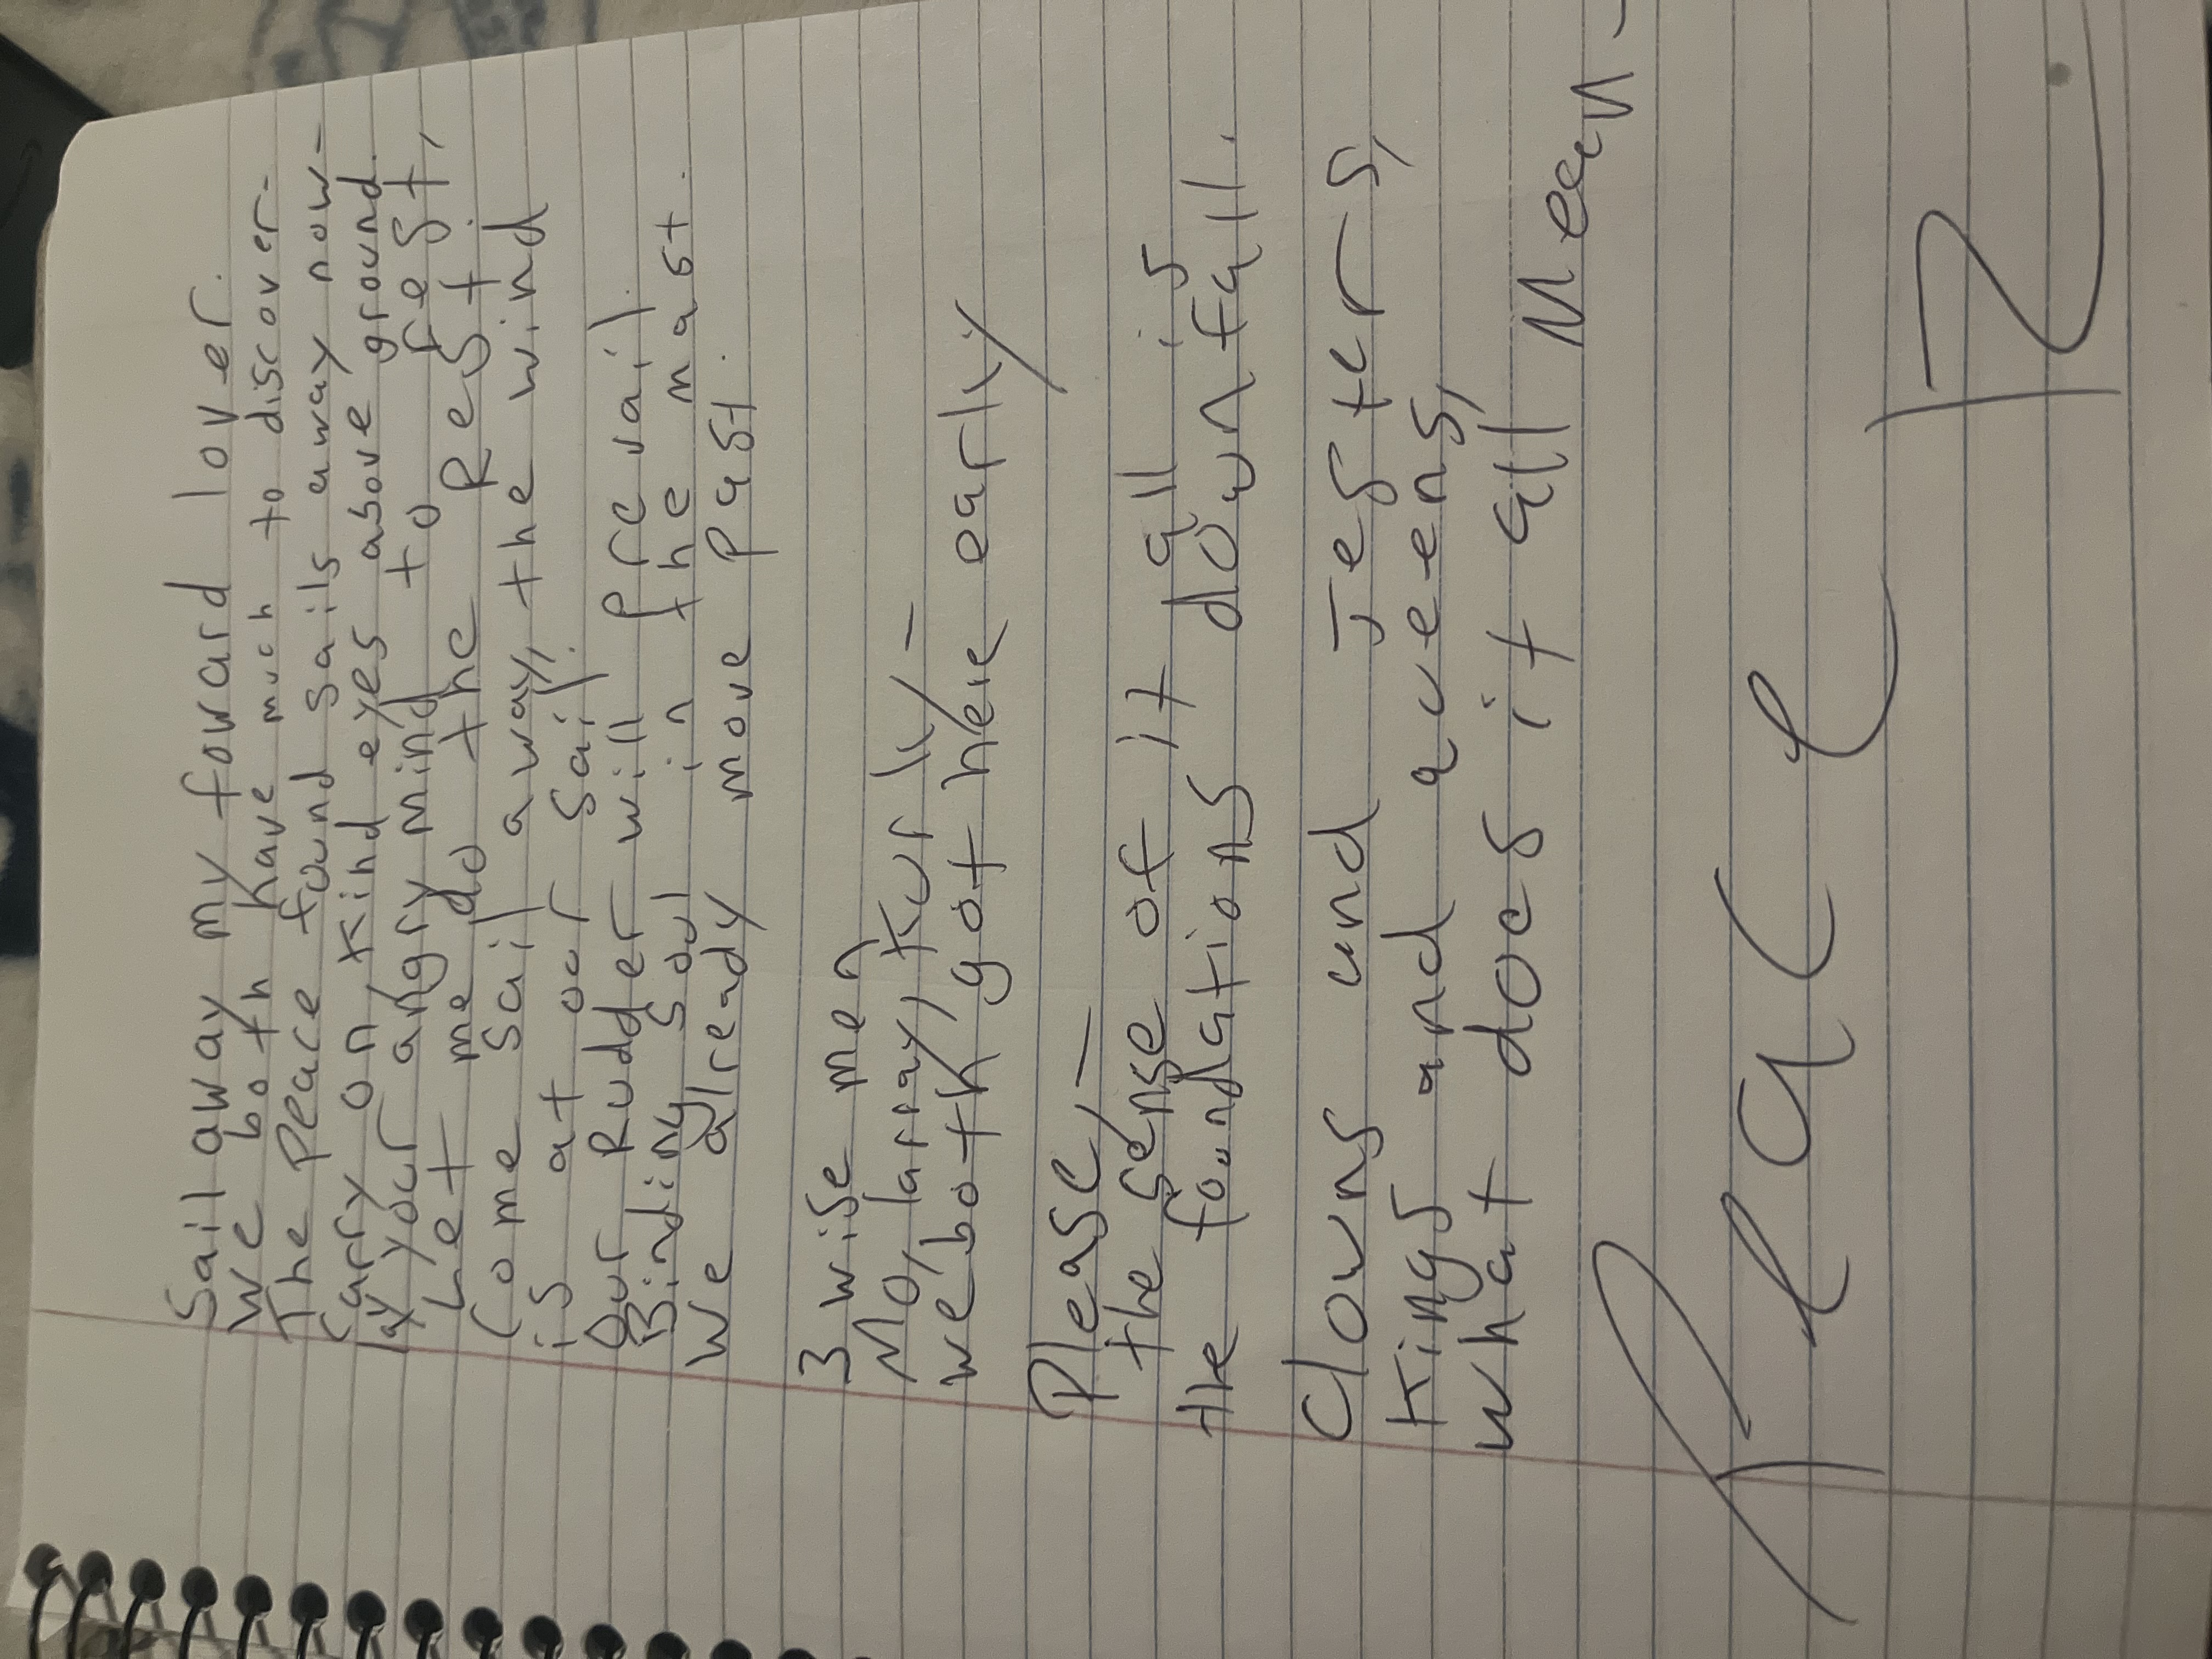 Sail away my foward lover.
We both have much to discover-
The peace found sails away now-
Carry on, kind eyes above ground.
lay your angry mind to rest,
Let me do the Rest.
Come sail away, the wind
is at our sail.
Our Rudder will prevail.
Binding soul in the mast.
We already move past.
3 wise men
Mo, larray, Kurly-
we both got here early
Please,-
the sense of it all is
the foundations downfall.
Clowns and Jesters,
Kings and queens,
what does it all Mean-
Peace